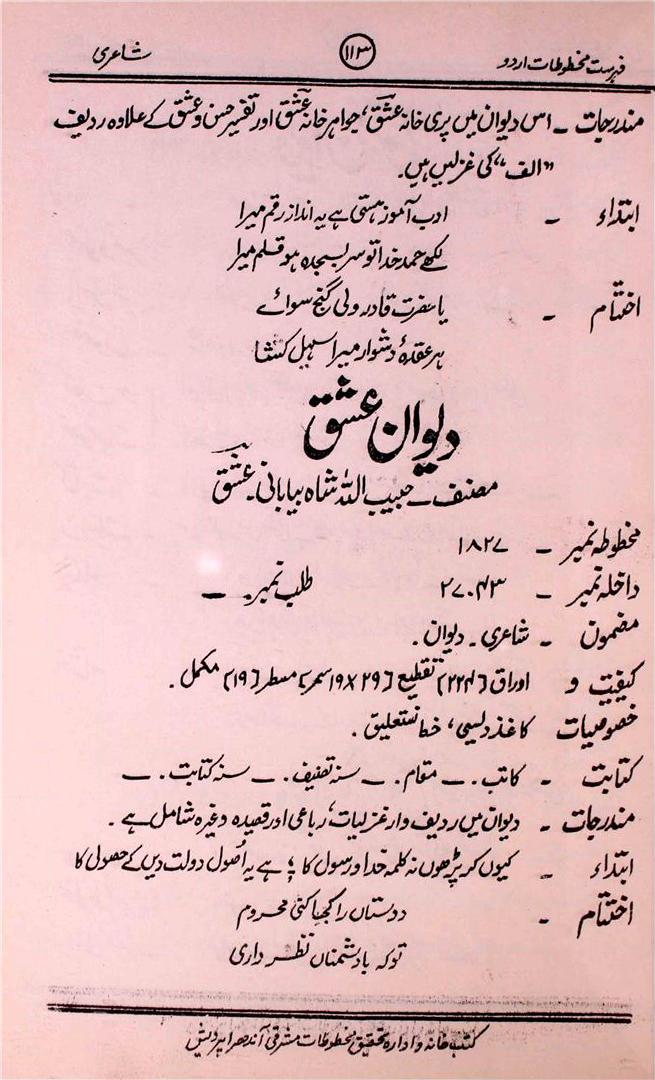 فہرست مخطوطات اردو ۱۱۳ شاعری
مندرجات ۔ اس دیوان میں پری خانہ عشق، جواہر خانہ عشق اور تفسیر حسن و عشق کے علاوہ ردیف
"الف" کی غزلیں ہیں۔
ابتداء ۔ ادب آموز ہستی ہے یہ انداز رقم میرا
لکھے حمد خدا تو سر بسجدہ ہو قلم میرا
اختتام ۔ یا حضرت قادر ولی گنج سوائے
ہر عقدۂ دشوار میرا سہل کشا
دیوان عشق
مصنف ۔ حبیب اللہ شاہ بیابانی۔ عشق
مخطوطہ نمبر ۔ ۱۸۲۷
داخلہ نمبر ۔ ۲۷۰۴۳ طلب نمبر۔ ــ
مضمون ۔ شاعری ۔ دیوان ۔
کیفیت و اوراق (۲۲۴) تقطیع (۲۹ × ۱۹ سمر) مسطر (۱۹) مکمل ۔
خصوصیات کاغذ دیسی، خط نستعلیق ۔
کتابت ۔ کاتب ۔ ــ مقام ۔ ــ سنہ تصنیف ۔ ــ سنہ کتابت ۔ ــ
مندرجات ۔ دیوان میں ردیف وار غزلیات، رباعی اور قصیدہ وغیرہ شامل ہے ۔
ابتداء ۔ کیوں کر پڑھوں نہ کلمہ خدا و رسول کا ؛ ہے یہ اُصول دولت دیں کے حصولی کا
اختتام ۔ دوستاں را کجا کنی محروم
تو کہ با دشمناں نظر داری
کتب خانہ و ادارہ تحقیق مخطوطات مشرقی آندھرا پردیش